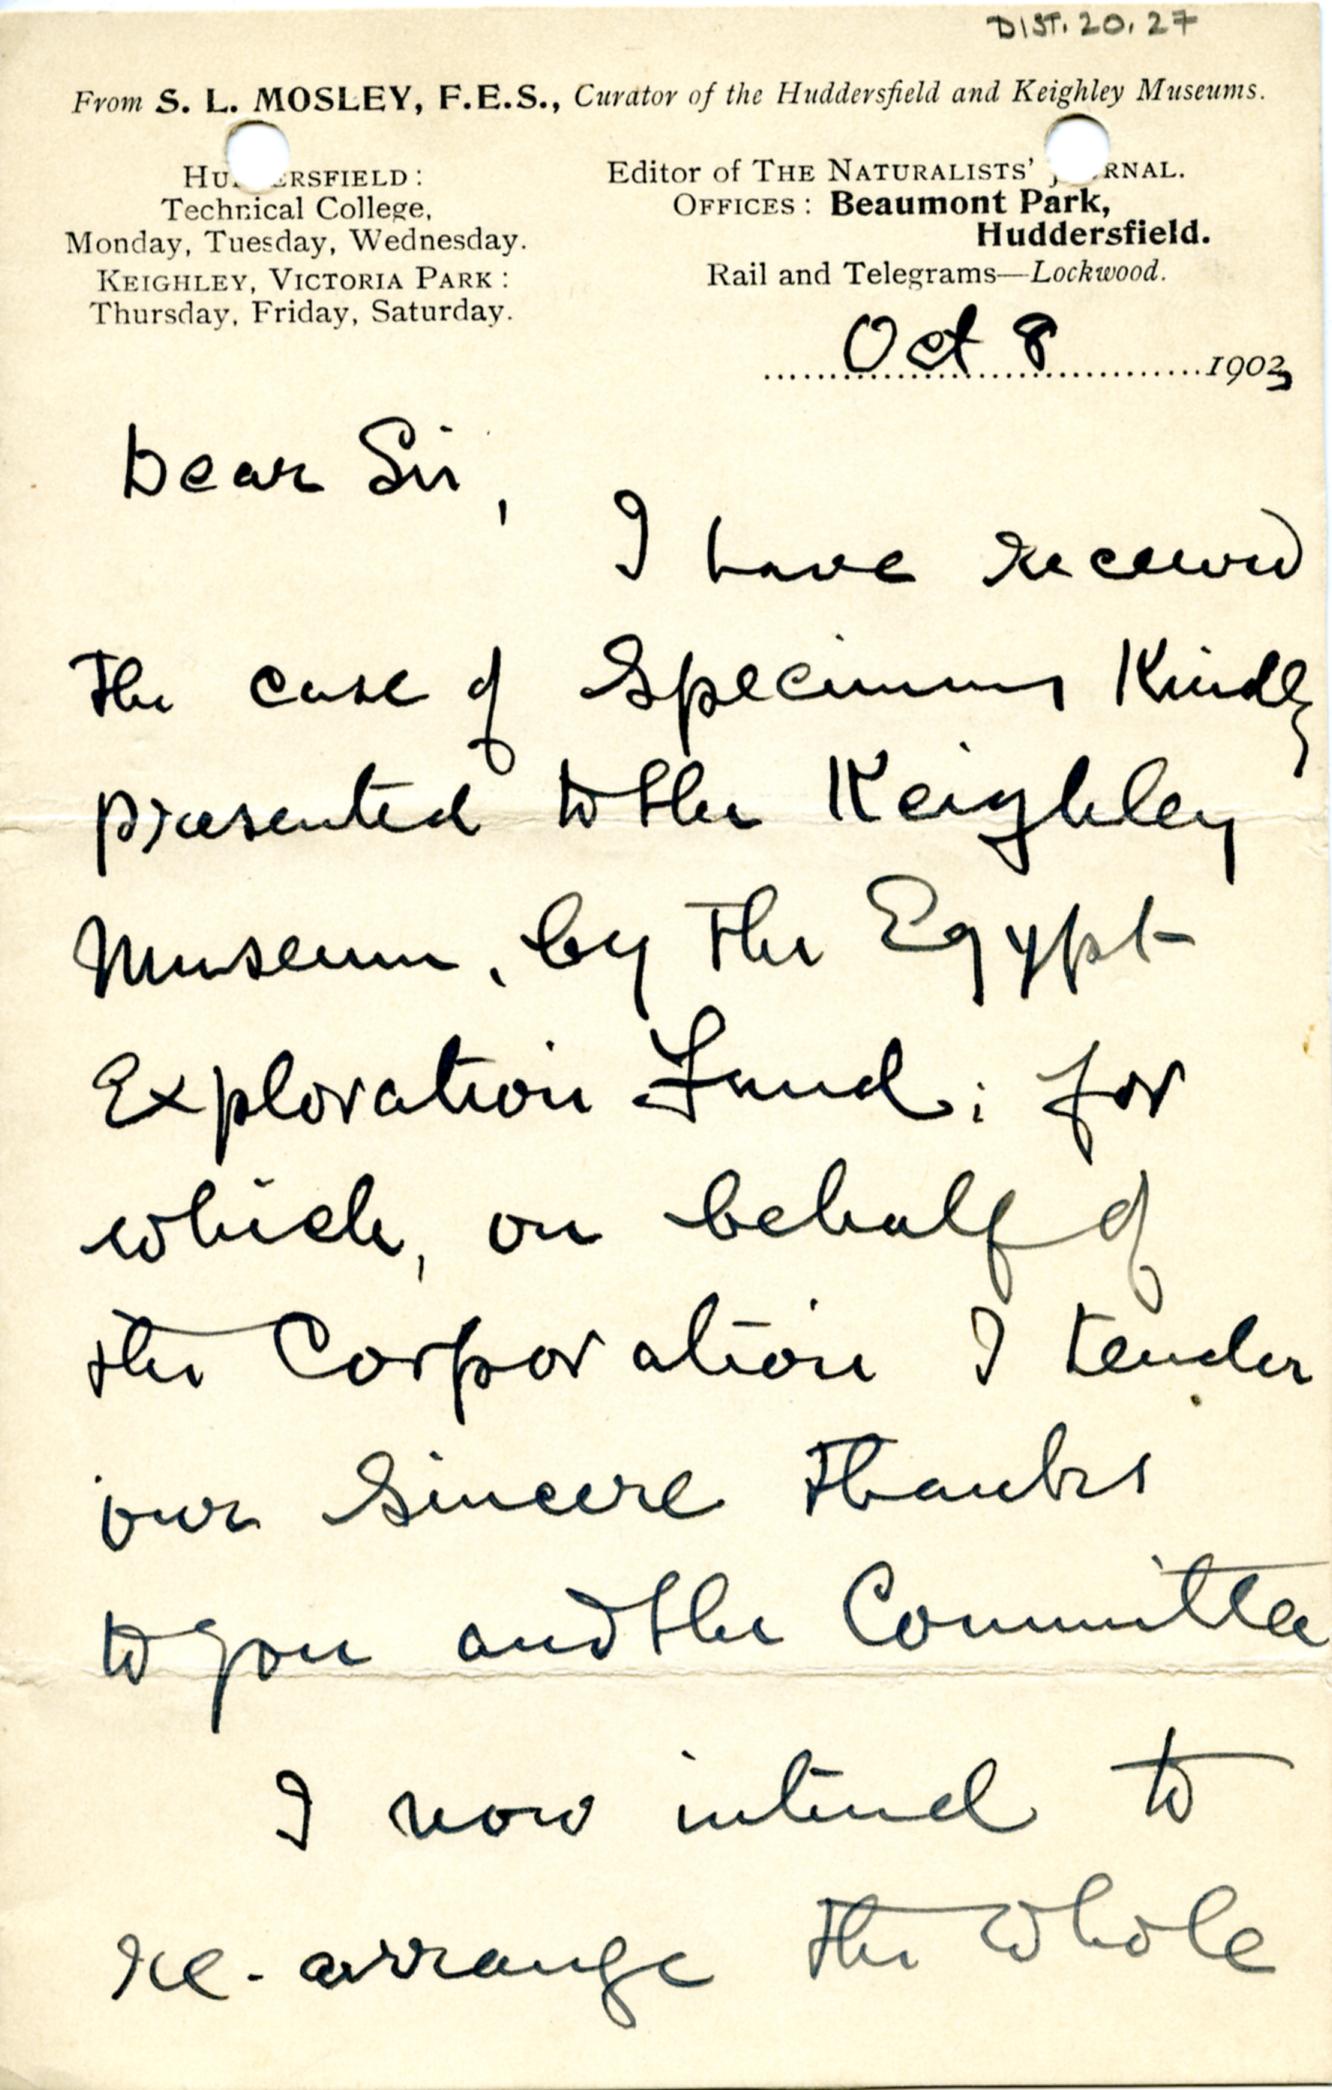 DIST. 20. 27
From S. L. MOSLEY, F.E.S., Curator of the Huddersfield and Keighley Museums.
HU RSFIELD:
Technical College,
Monday, Tuesday, Wednesday.
KEIGHLEY, VICTORIA PARK:
Thursday, Friday, Saturday.
Editor of THE NATURALISTS' J RNAL.
OFFICES: Beaumont Park,
Huddersfield.
Rail and Telegrams—Lockwood.
Oct 8 1903
Dear Sir,
I have received
the case of Specimens Kindly
presented to the Keighley
Museum, by the Egypt
Exploration Fund; for
which, on behalf of
the Corporation I tender
our Sincere thanks
to you and the Committee
I now intend to
re-arrange the whole